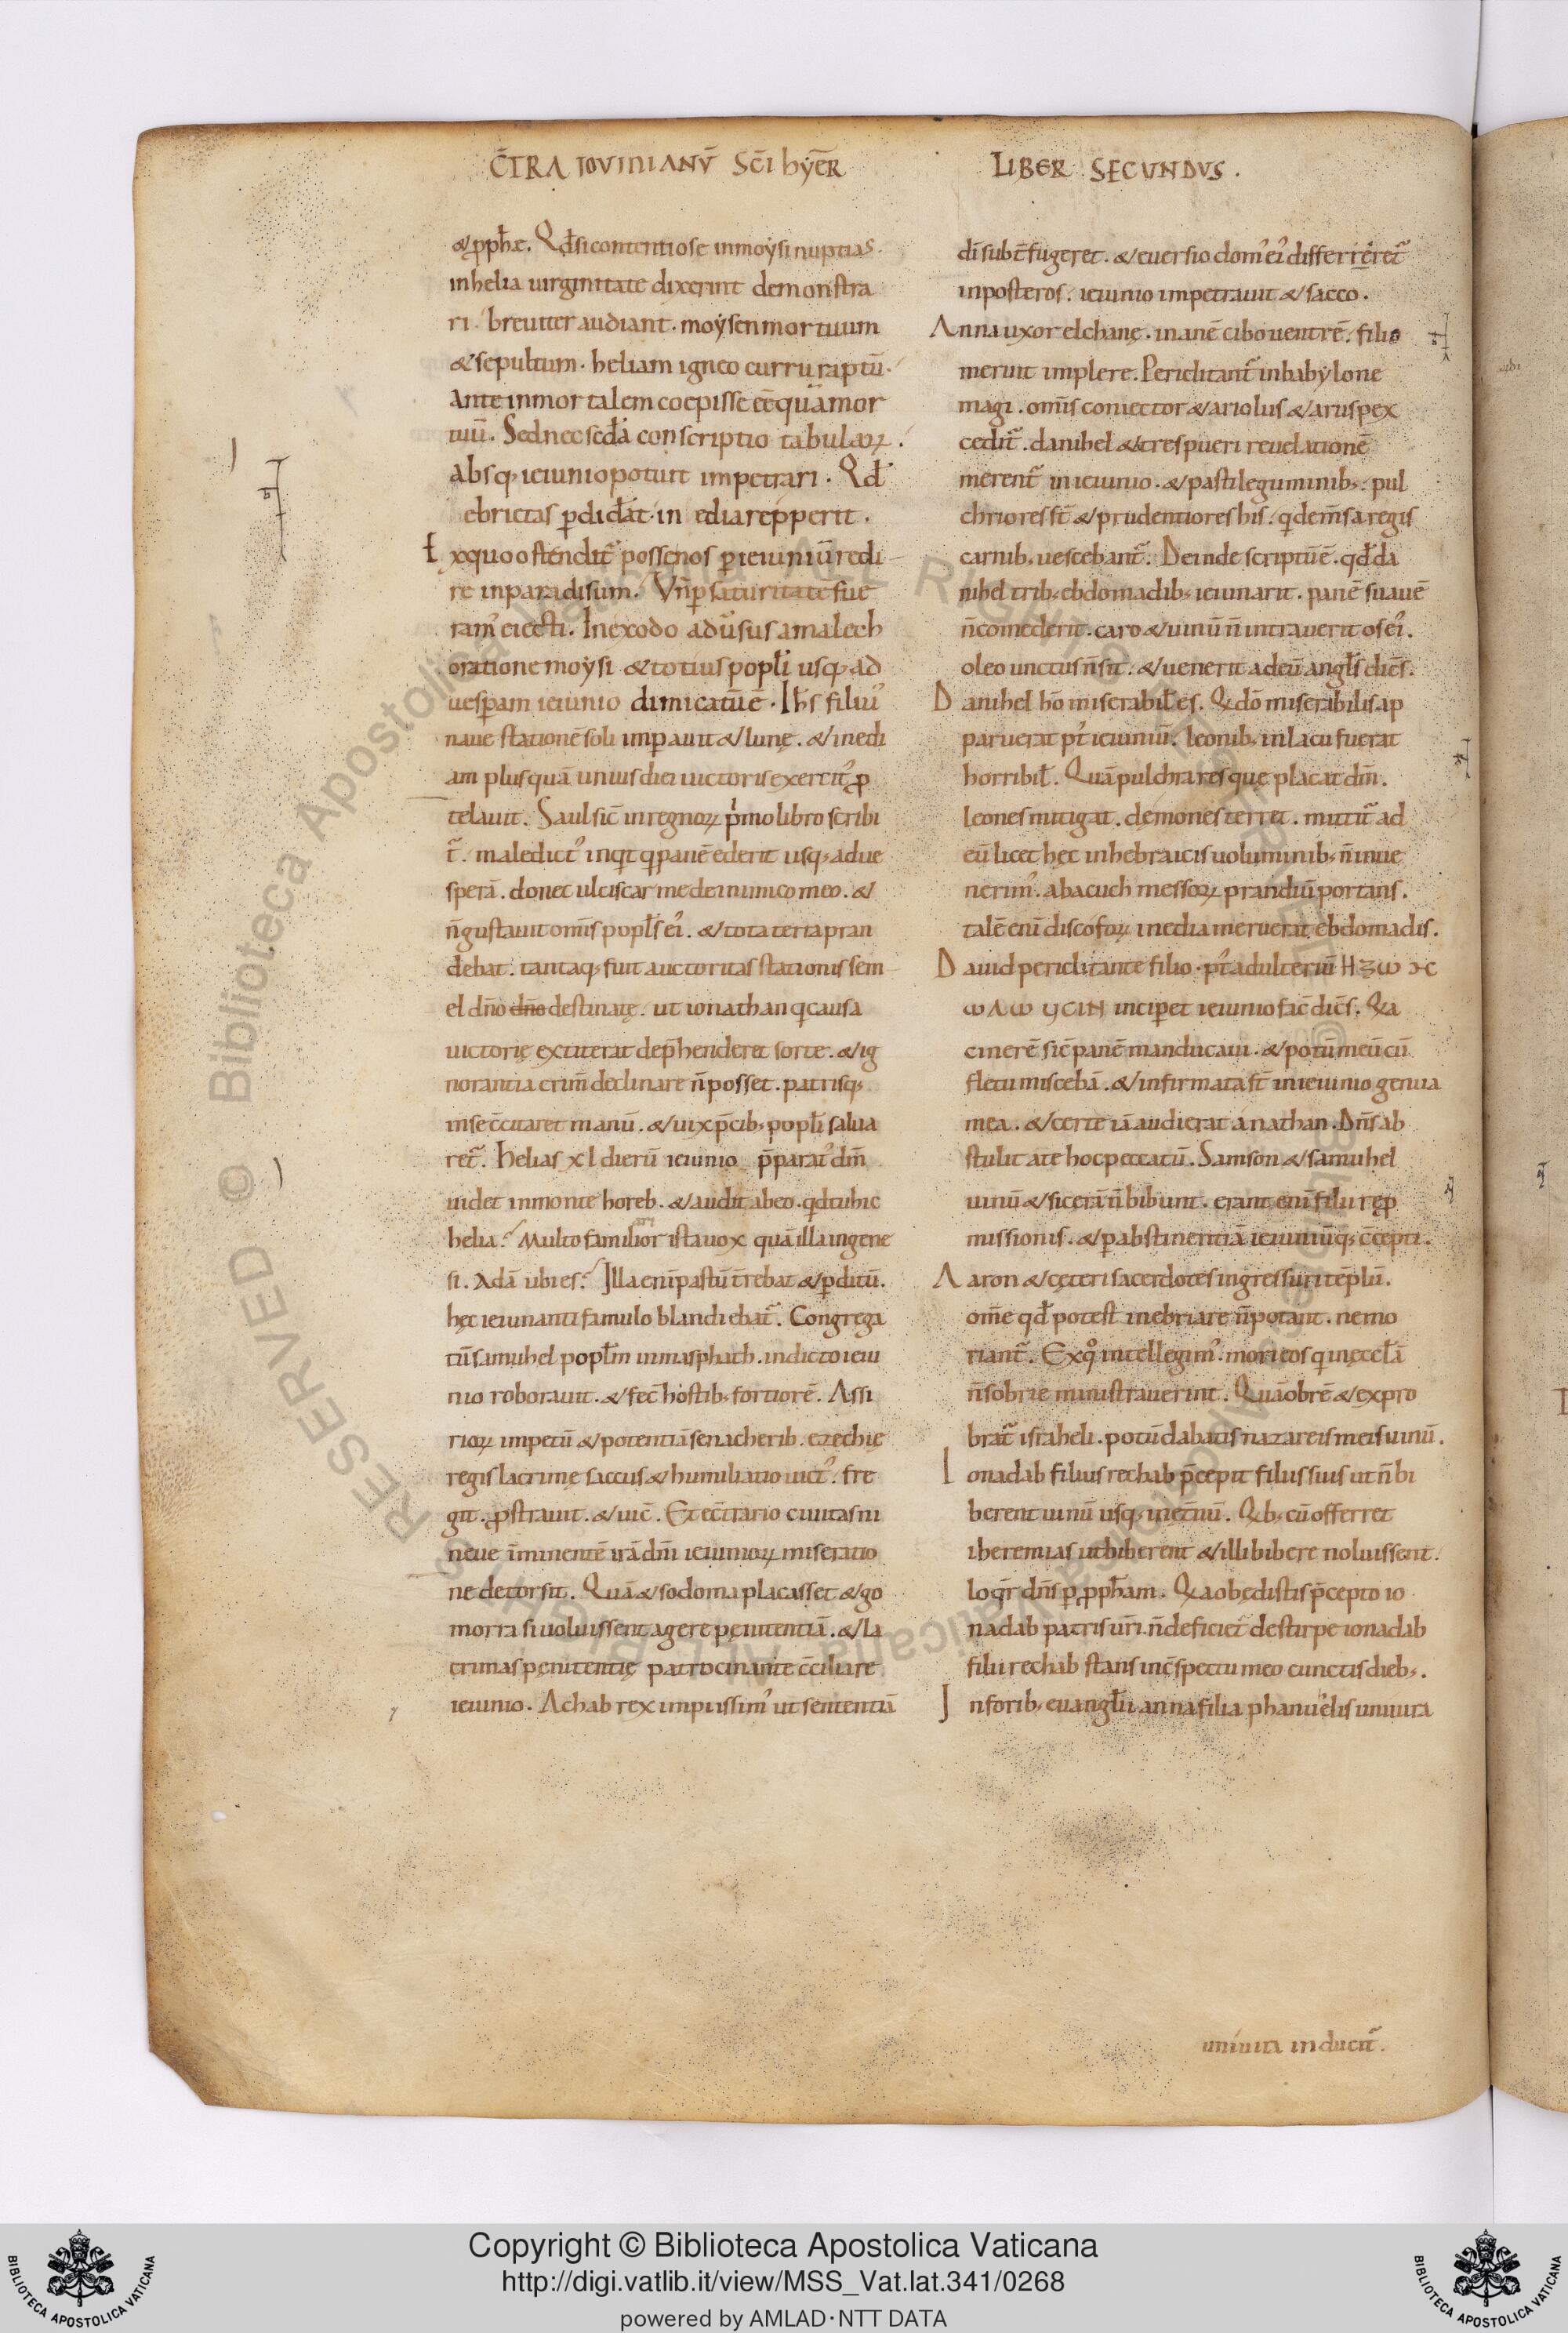 C̄TRA IOVINIANV̄ SC̄I hYER̄
& ꝓph̄æ. Qđ si contentiose in moẏsi nuptias.
in helia uirginitate dixerint demonstra
ri. breuiter audiant. moẏsen mortuum
& sepultum. heliam igneo curru raptū.
Ante inmortalem coepisse eē quā mor
tuū. Sed nec scđa conscriptio tabulaꝝ.
absq; ieiunio potuit impetrari. Qđ
ebrietas ꝑdiđat. in ediareꝑperit.
Ex quo ostendit᷒ posse nos ꝑ ieiuniū redi
re in paradisum. Vn̄ ꝑ saturitatē fue
ram᾽ eiecti. In exodo adu᷒sus amalech
oratione moẏsi & totius popłi usq; ad
uesꝑam ieiunio dimicatū ē. Ih̄s filiu᾽
naue stationē soli imꝑauit & lunę. & inedi
am plusquā unius diei uictoris exercit᾽ ꝓ
telauit. Saul sic̄ in regnoꝝ pͥmo libro scribi
t᷒. maledict᾽ inqt q ꝑ panē ederit usq; ad ue
sperā. donec ulciscar me de inimico meo. &
n̄ gustauit omīs popłs ei᾽. & tota terra pran
debat. tantaq; fuit auctoritas stationis sem
el dn̄o dn̄o destinatę. ut ionathan q causa
uictorię extiterat dep̄henderet sorte. & ig
norantia crim̄ declinare n̄ posset. patrisq;
in se c̄citaret manū. & uix p̄cib; popłi salua
ret᷒. helias xl dierū ieiunio p̄parat᾽ dm̄
uidet in monte horeb. & audit ab eo. qd tu hic
helia? Multo familior ista uox quā illa in gene
si. Adā ubi es? Illa eni̅ pastū t̄rebat & ꝑditū.
hęc ieiunanti famulo blandiebat᷒. Congrega
tū samuhel popłm in masphath. indicto ieiu
nio roborauit. & fec̄ hostib; fortiorē. Assi
rioꝝ impetū & potentiā senacherib. ezechię
regis lacrimę saccus & humiliatio uict᾽. fre
git. ꝓstrauit. & uic̄. Et ec̄trario ciuitas ni
neue im̄inentē irā dm̄i ieiunioꝝ miseratio
ne detorsit. Quā & sodoma placasset & go
morra si uoluissent agere pęnitentiā. & la
crimas penitentię patrocinante c̄ciliare
ieiunio. Achab rex impiissim᾽ ut sententiā
LIBER SECUNDUS.
di sub t̄fugeret. & euersio dom᾽ ei᾽ differreret᷒
in posteros. ieiunio impetrauit & sacco.
Anna uxor elchanę. inanē cibo uentrē. filio
meruit implere. Periclitant᷒ in babẏlone
magi. omīs coniector & ariolus & aruspex
cedit᷒. danihel & tres pueri reuelationē
merent᷒ in ieiunio. & pasti leguminib;. pul
chriores st̄ & prudentiores his. q de m̄sa regis
carnib; uescebant᷒. Deinde scriptū ē. qđ da
nihel trib; ebdomadib; ieiunarit. panē suauē
n̄ comederit. caro & uinū n̄ intrauerit os ei᾽.
oleo unctus n̄ sit. & uenerit ad eū angłs dic̄s.
Danihel hō miserabił es. Q do miserabilis ap
paruerat pt᾽ ieiuniū. leonib; in lacu fuerat
horribił. Quā pulchra res quę placat dm̄.
leones mitigat. dęmones terret. mittit᷒ ad
eū licet hęc in hebraicis uoluminib; n̄ inue
nerim᾽. abacuch messoꝝ prandiū portans.
talē eni̅ discoforꝝ inedia meruerat ebdomadis.
Dauid periclitante filio. pt᾽ adulteriū
inciꝑet ieiunio fac̄ dic̄s. Qa
cinerē sic̄ panē manducaui. & potū meū cū
fletu miscebā. & infirmata st̄ in ieiunio genua
mea. & certe iā audierat a nathan. Dn̄s ab
stulit a te hoc peccatū. Samson & samuhel
uinū & sicerā n̄ bibunt. erant eni̅ filii reꝑ
missionis. & ꝑ abstinentiā ieiuniūq; c̄cepti.
Aaron & cęteri sacerdotes ingressuri tēplū.
om̄e qđ potest inebriare n̄ potant. ne mo
riant᷒. Ex qͦ intellegim᾽. mori eos q in ęccł̄a
n̄ sobrie ministrauerint. Quāobrē & expro
brat᷒ israheli. potū dabatis nazareis meis uinū.
Ionadab filius rechab p̄cepit filiis suis ut n̄ bi
berent uinū usq; in ęt̄nū. Qb; cū offerret
iheremias ut biberent & illi bibere noluissent.
loqr̄ dn̄s ꝑ ꝓph̄am. Qa obędistis p̄cepto io
nadab patris ur̄i. n̄ deficiet de stirpe ionadab
filii rechab stans in c̄spectu meo cunctis dieb;.
In forib; euangłii anna filia phanuelis uniuira
uniuira inducit᷒.
Copyright © Biblioteca Apostolica Vaticana
http://digi.vatlib.it/view/MSS_Vat.lat.341/0268
powered by AMLAD·NTT DATA
BIBLIOTECA APOSTOLICA VATICANA
BIBLIOTECA APOSTOLICA VATICANA